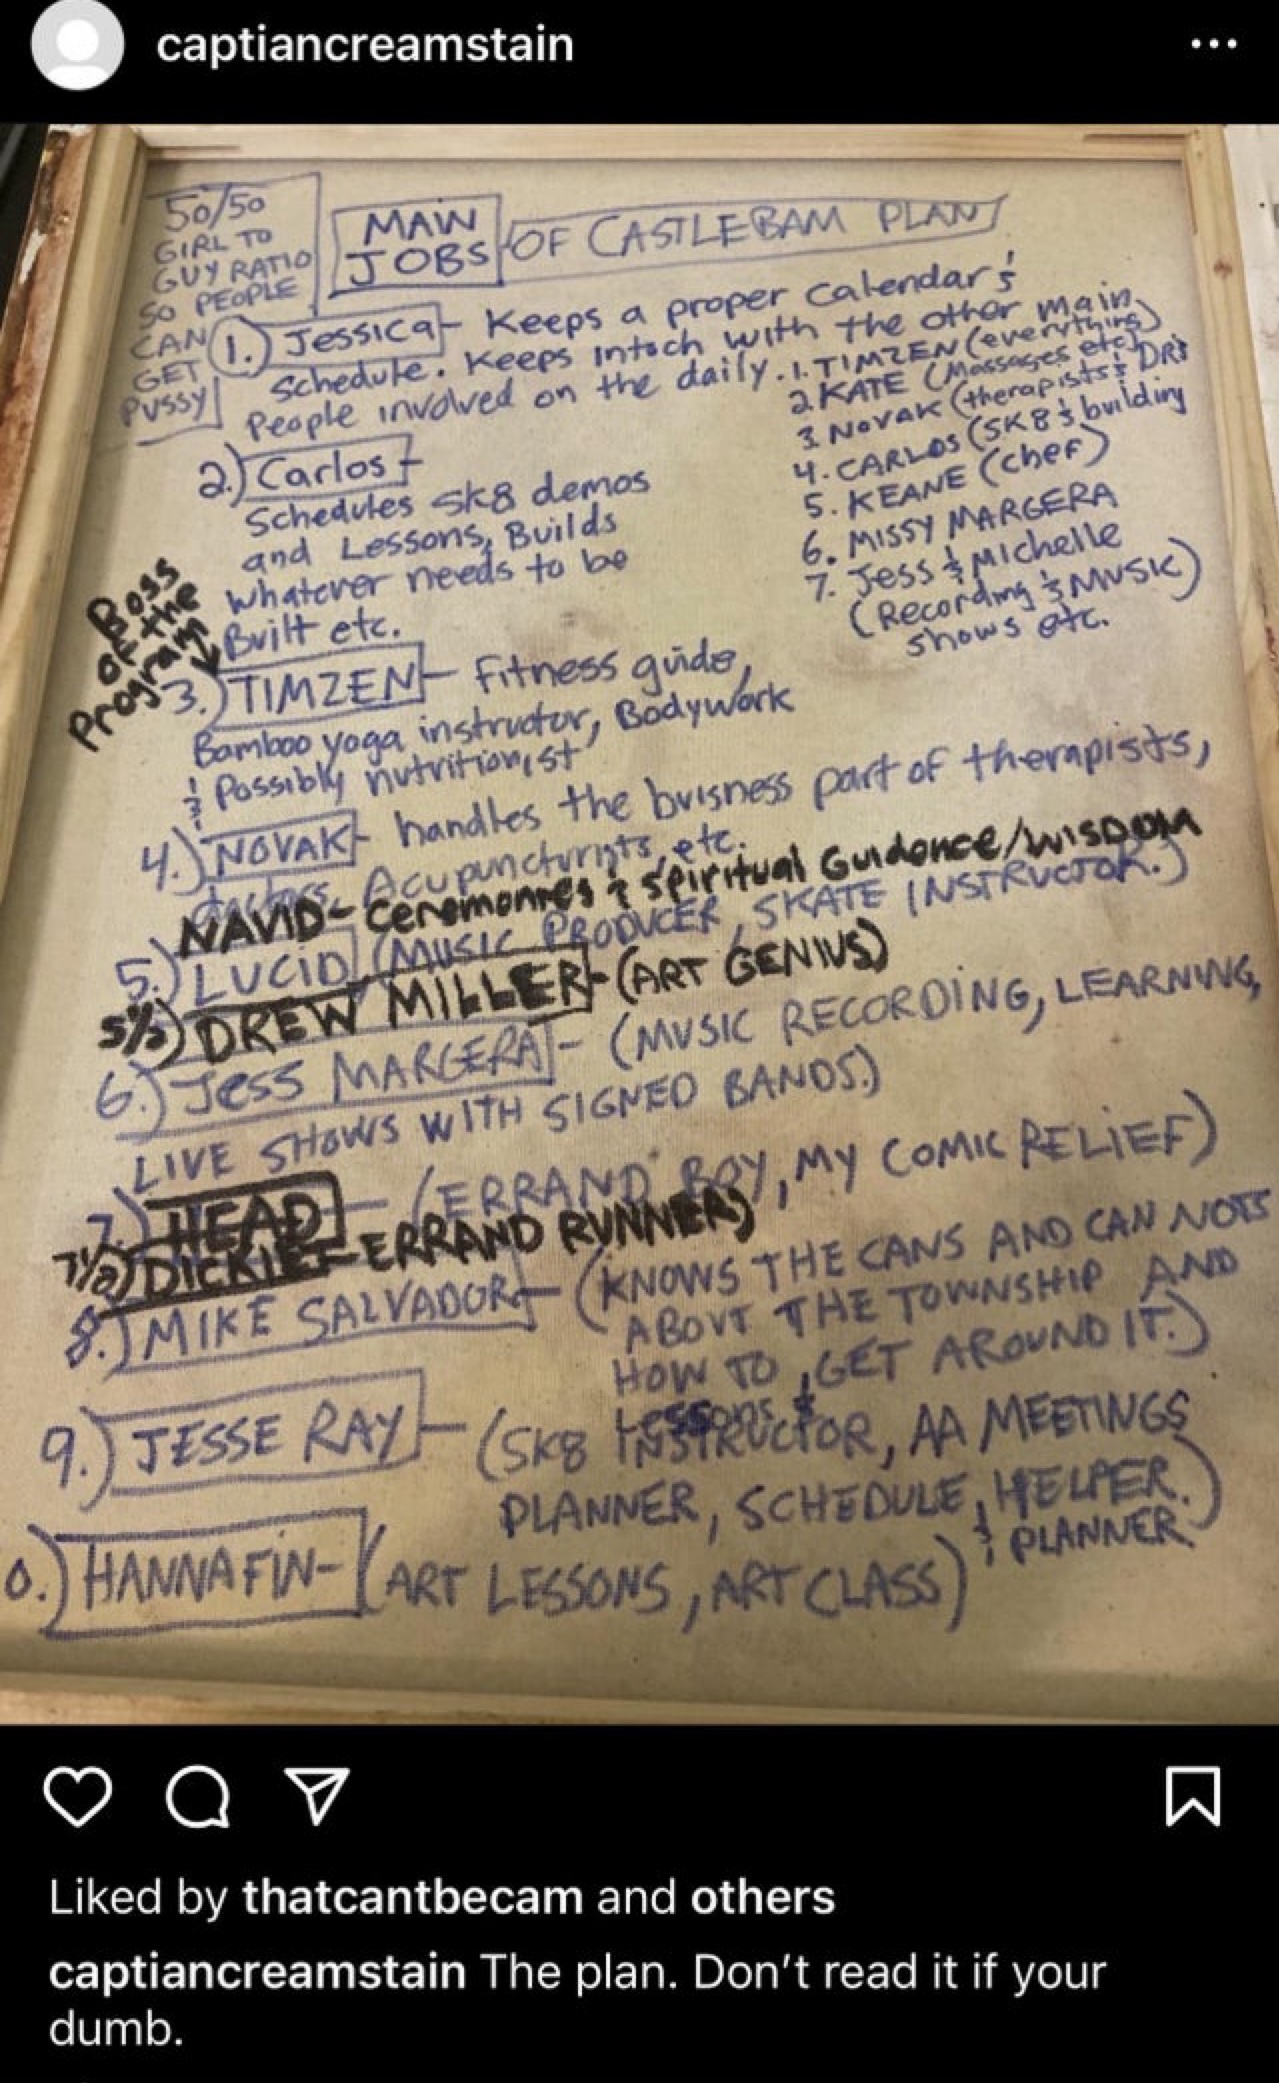 captiancreamstain
50/50
GIRL TO
GUY RATIO
SO PEOPLE
CAN
GET
PUSSY
MAIN
JOBS OF CASTLEBAM PLAN
1.) Jessica - Keeps a proper calendar &
Schedule. Keeps intoch with the other main
People involved on the daily.
1. TIMZEN (everything)
2 KATE (Massages etc)
3 NOVAK (therapists & DRs
4. CARLOS (SK8 & building
5. KEANE (chef)
6. MISSY MARGERA
7. Jess & Michelle
(Recording & MUSIC)
shows etc.
2.) Carlos -
Schedules sk8 demos
and Lessons, Builds
whatever needs to be
Built etc.
Boss
of the
Program
3.) TIMZEN - Fitness guide,
Bamboo yoga instructor, Bodywork
& Possibly nutritionist
4.) NOVAK - handles the buisness part of therapists,
doctors, Acupuncturists, etc.
NAVID - Ceremonies & Spiritual Guidence/wisdom
5.) LUCID (MUSIC PRODUCER, SKATE INSTRUCTOR.)
5½) DREW MILLER - (ART GENIUS)
6.) Jess MARGERA - (MUSIC RECORDING, LEARNING,
LIVE SHOWS WITH SIGNED BANDS.)
7.) HEAD - (ERRAND BOY, MY COMIC RELIEF)
7½) DICKIE - ERRAND RUNNER)
8.) MIKE SALVADOR - (KNOWS THE CANS AND CAN NOTS
ABOUT THE TOWNSHIP AND
HOW TO GET AROUND IT.)
9.) JESSE RAY - (SK8 Lessons & INSTRUCTOR, AA MEETINGS
PLANNER, SCHEDULE, HELPER.)
& PLANNER
0.) HANNAFIN - (ART LESSONS, ART CLASS)
Liked by thatcantbecam and others
captiancreamstain The plan. Don't read it if your
dumb.